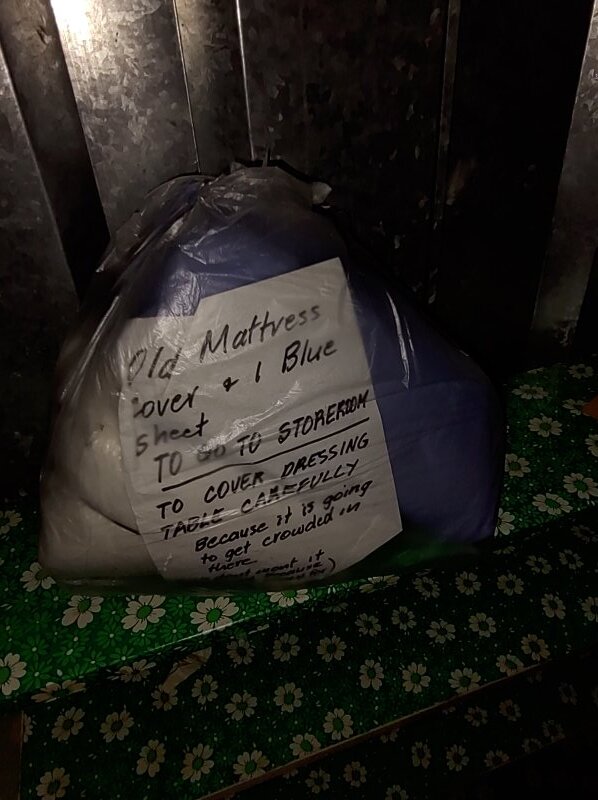 Old Mattress
cover & 1 Blue
sheet
TO GO TO STOREROOM
TO COVER DRESSING
TABLE CAREFULLY
Because it is going
to get crowded in
there
want it
because